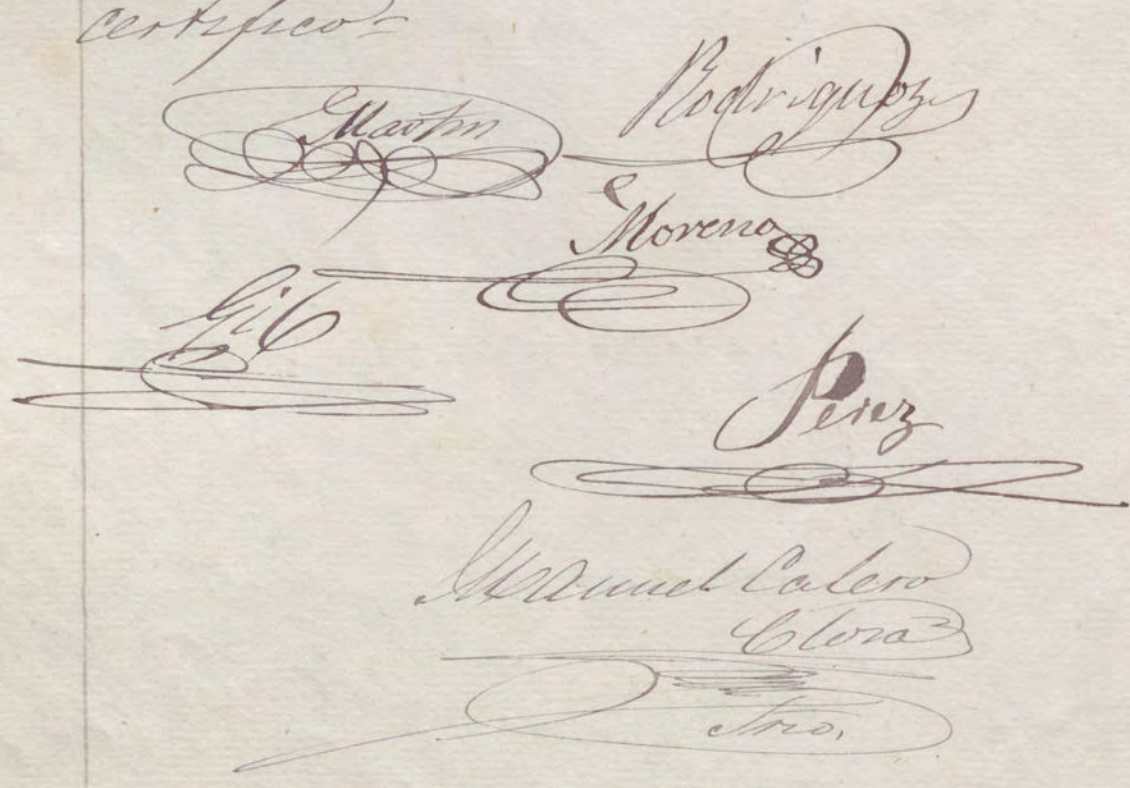 certifico=
Martin
Rodriguez
Moreno
Gil
Perez
Manuel Calero
Srio.